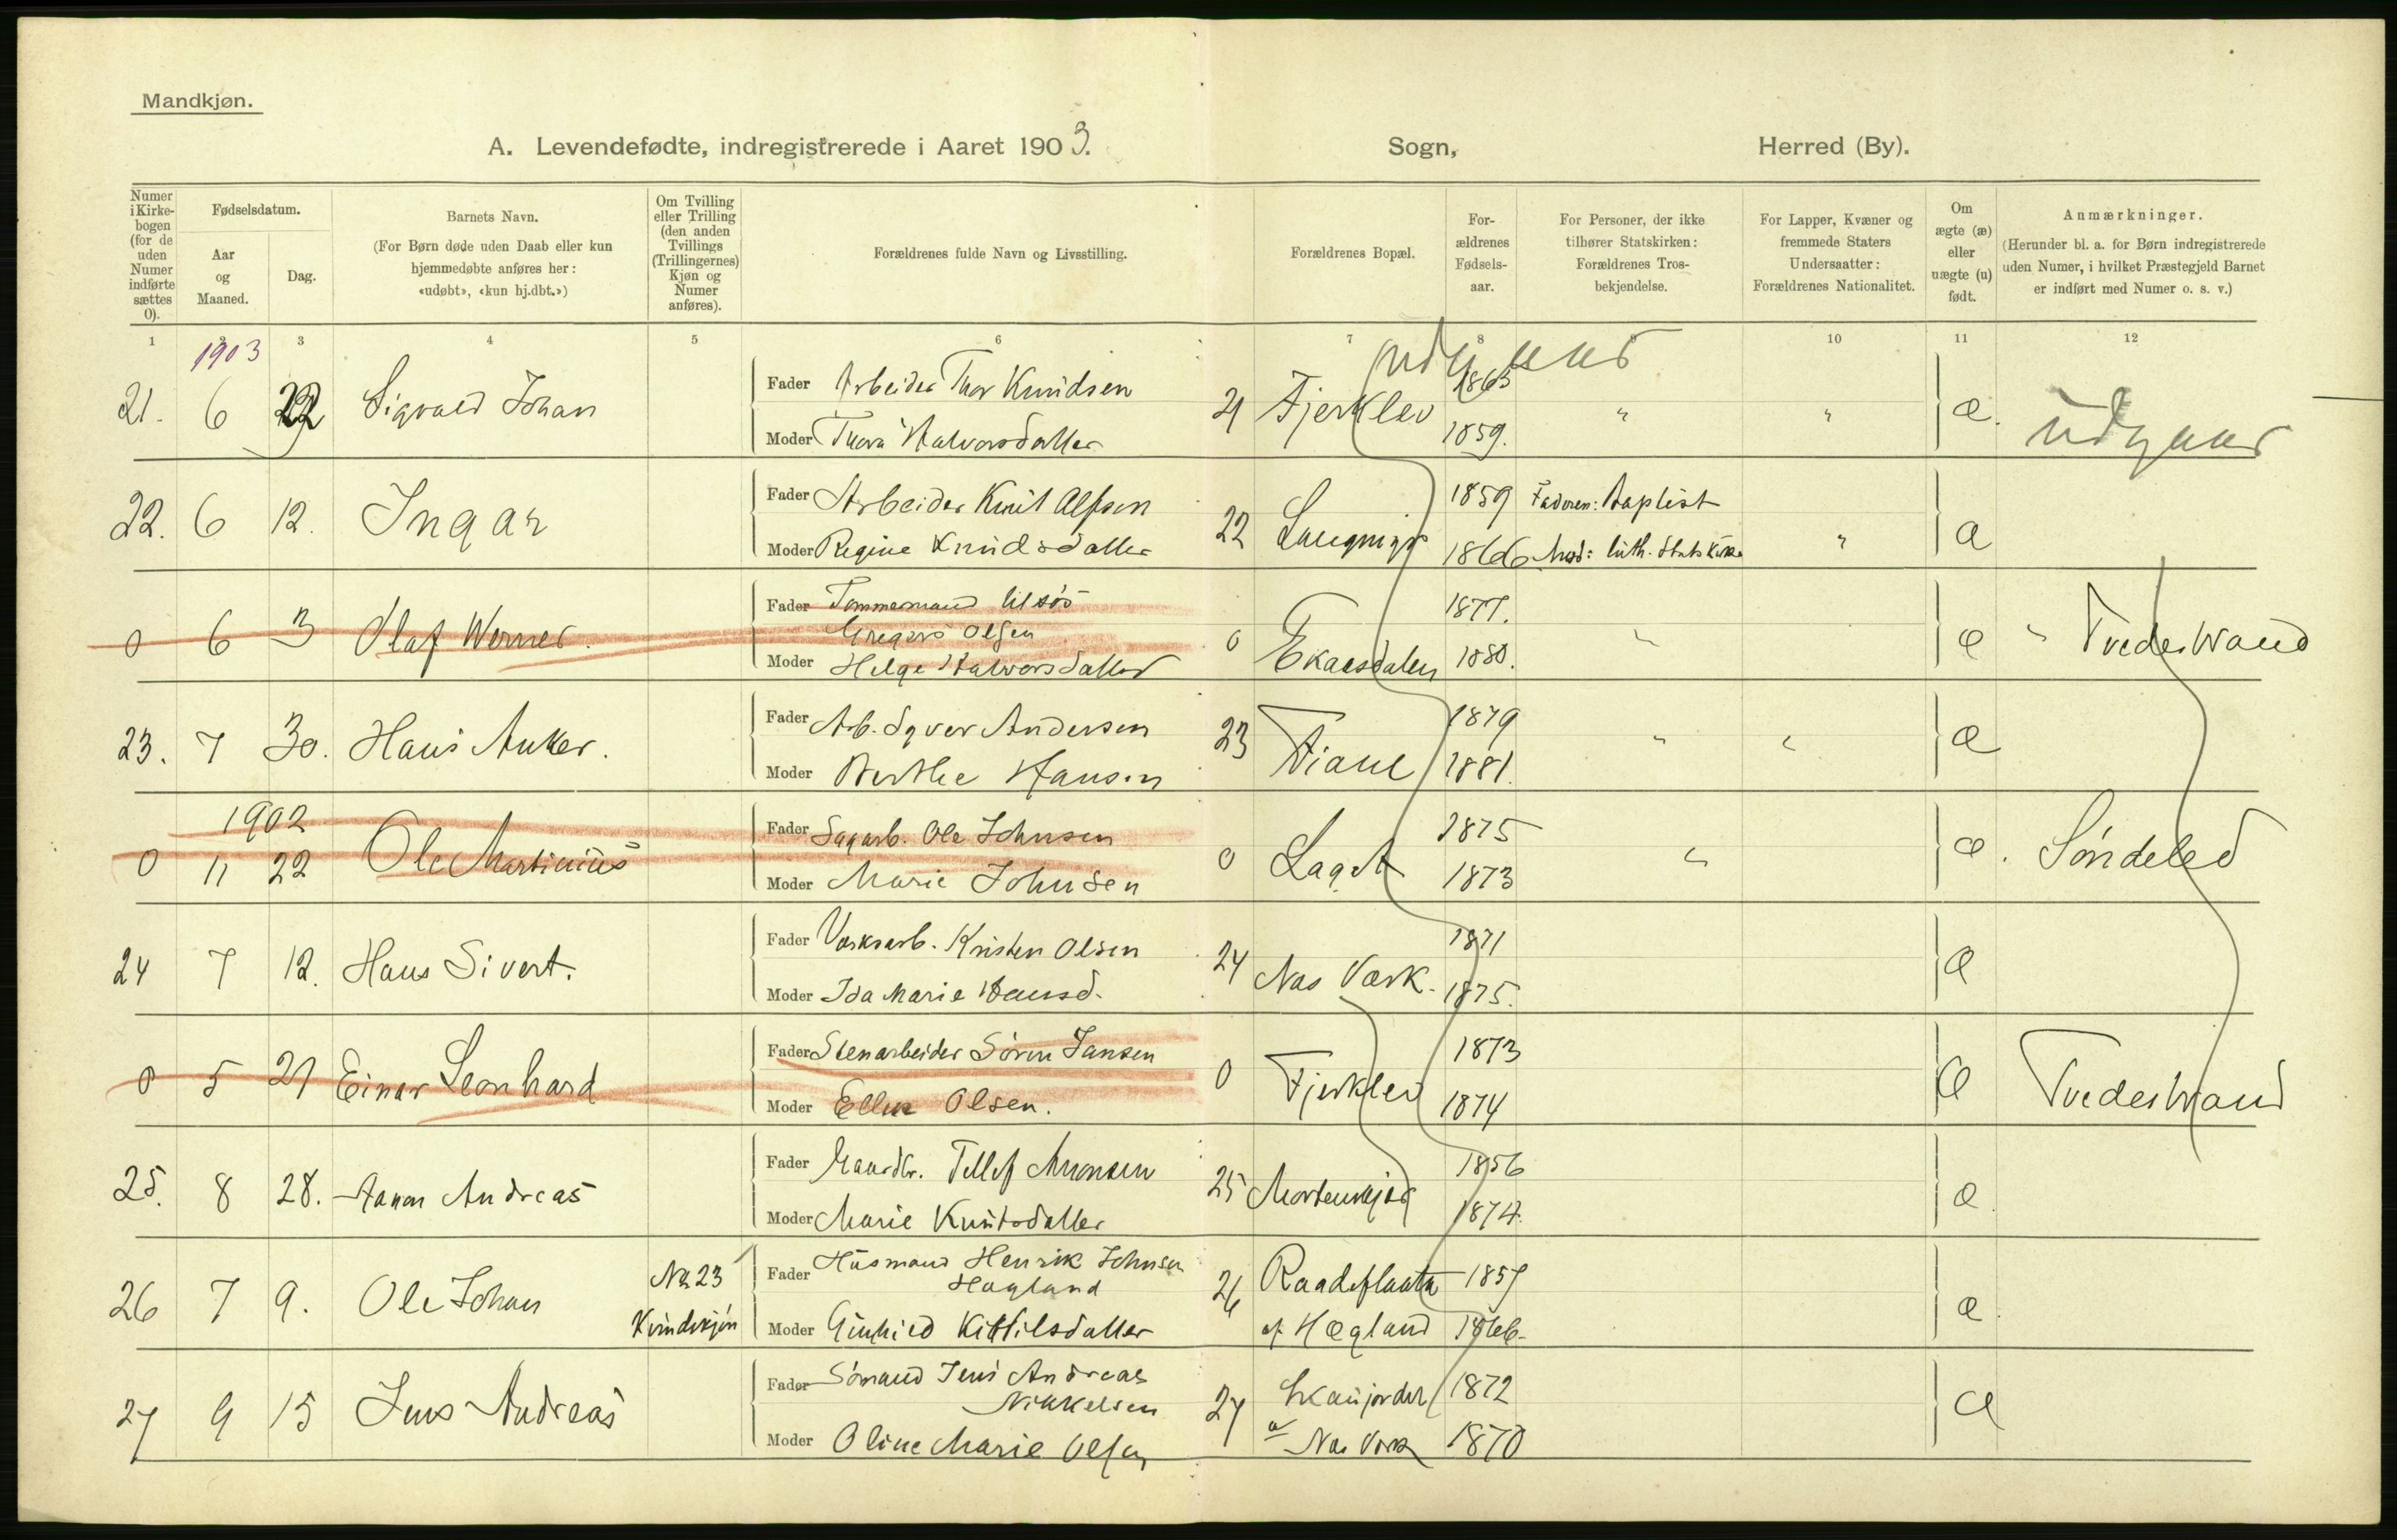 Mandkjøn.
A. Levendefødte, indregistrerede i Aaret 1903.
Sogn,
Herred (By).
Numer i Kirke-bogen (for de uden Numer indførte sættes 0).
Fødselsdatum.
Aar og Maaned.
Dag.
Barnets Navn.
(For Børn døde uden Daab eller kun hjemmedøbte anføres her: «udøbt», «kun hj.dbt.»)
Om Tvilling eller Trilling (den anden Tvillings (Trillingernes) Kjøn og Numer anføres).
Forældrenes fulde Navn og Livsstilling.
Forældrenes Bopæl.
For-ældrenes Fødsels-aar.
For Personer, der ikke tilhører Statskirken: Forældrenes Tros-bekjendelse.
For Lapper, Kvæner og fremmede Staters Undersaatter: Forældrenes Nationalitet.
Om ægte (æ) eller uægte (u) født.
Anmærkninger.
(Herunder bl. a. for Børn indregistrerede uden Numer, i hvilket Præstegjeld Barnet er indført med Numer o. s. v.)
1 3 4 5 6 7 8 10 11 12
1903
udgaar
21. 6 22 Sigvald Johan
Fader Arbeider Thor Knudsen
Moder Thora Halvorsdatter
21 Fjerklev 1863 1859. " " æ. udgaar
22. 6 12. Ingar
Fader Arbeider Knut Alfsen
Moder Regine Knudsdatter
22 1859 Faderen: Baptist
1866 Mod: luth. Statskirke " æ
0 6 3 Olaf Werner.
Fader Tømmermand tilsøs
Gregers Olsen
Moder Helge Halvorsdatter
0 Ekaasdalen 1877. 1880. " æ " Tvedestrand
23. 7 30. Hans Anker.
Fader Arb. Syver Andersen
Moder Berthe Hansen
23 Fiane 1879 1881. " " æ
1902
0 11 22 Ole Martinius
Fader Sagarb. Ole Johnsen
Moder Marie Johnsen
0 Laget 1875 1873 " æ. Søndeled
24 7 12. Hans Sivert.
Fader Værksarb. Kristen Olsen
Moder Ida Marie Hansd.
24 Næs Værk. 1871 1875. æ
0 5 21 Einar Leonhard
Fader Stenarbeider Søren Jansen
Moder Ellen Olsen.
0 Fjerklev 1873 1874 æ Tvedestrand
25. 8 28. Aanon Andreas
Fader Gaardbr. Tellef Aanonsen
Moder Marie Knutsdatter
25 1856 1874. æ.
26 7 9. Ole Johan
No 23
Kvindekjøn
Fader Husmand Henrik Johnsen
Hagland
Moder Gunhild Kittilsdatter
26 Raadeflaata
af Hægland 1857 1866. æ.
27 9 15 Jens Andreas
Fader Sømand Jens Andreas
Nikkelsen
Moder Oline Marie Olsen
27 Skaujordet
af Næs Værk 1872 1870 æ